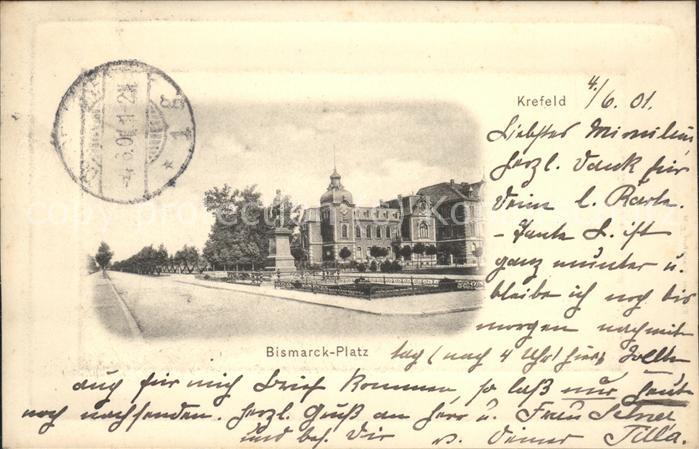 Krefeld 4./6. 01.
Liebster
herzl. Dank für
Deine l. Karte.
- Tante L. ist
ganz munter u.
bleibe ich noch bis
morgen nachmit
Bismarck-Platz
tag (nach 4 Uhr) hier. Sollte
auch für mich Brief kommen, so laß nur heute
noch nachsenden. Herzl. Gruß an Herr u. Frau
und bes. Dir v. Deiner Tilla.